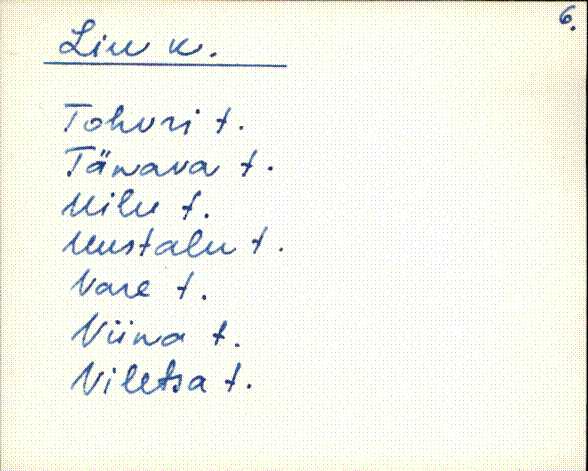 6.
Liu k.
Tohvri t.
Tänava t.
Uilu t.
Uustalu t.
Vare t.
Viina t.
Viletsa t.